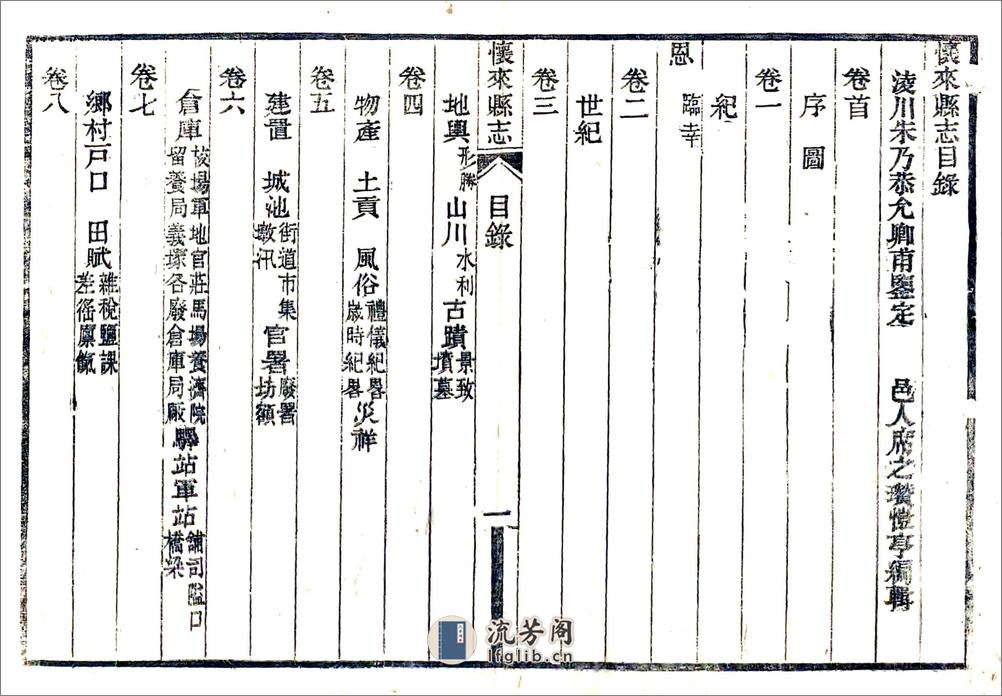 懷來縣志目錄
淩川朱乃恭允卿甫鑒定 邑人席之瓚愷亭編輯
卷首
序 圖
卷一
紀
恩
臨幸
卷二
世紀
卷三
懷來縣志 目錄 一
地輿形勝 山川水利 古蹟景致墳墓
卷四
物產 土貢 風俗禮儀紀畧歲時紀畧 災祥
卷五
建置 城池街道市集墩汛 官署廢署坊額
卷六
倉庫校場軍地官莊馬場養濟院留養局義塚各廢倉庫局厰 驛站軍站鋪司隘口橋梁
卷七
鄉村戸口 田賦雜稅鹽課差徭廩餼
卷八
流芳阁
lfglib.cn